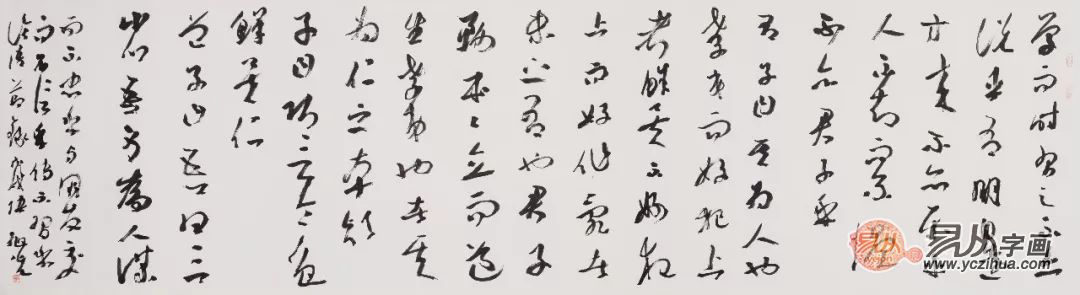 學而時習之不亦
說乎有朋自遠
方來不亦樂乎
人不知而不愠
不亦君子乎
有子曰其為人也
孝弟而好犯上
者鮮矣不好犯
上而好作亂者
未之有也君子
務本々立而道
生孝弟也者其
為仁之本歟
子曰巧言令色
鮮矣仁
曾子曰吾日三
省吾身為人謀
而不忠乎與朋友交
而不信乎傳不習乎
論語節錄
易从字画
www.yczihua.com